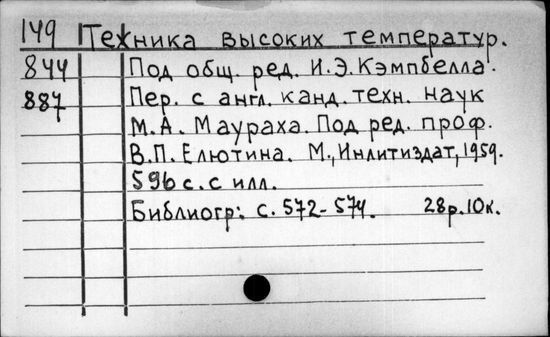 149 Техника высоких температур.
844 Под общ. ред. И.Э.Кэмпбелла.
887 Пер. с англ. канд. техн. наук
М.А. Маураха. Под ред. проф.
В.П. Елютина. М., Инлитиздат, 1959.
596 с. с илл.
Библиогр: с. 572-574. 28р.10к.